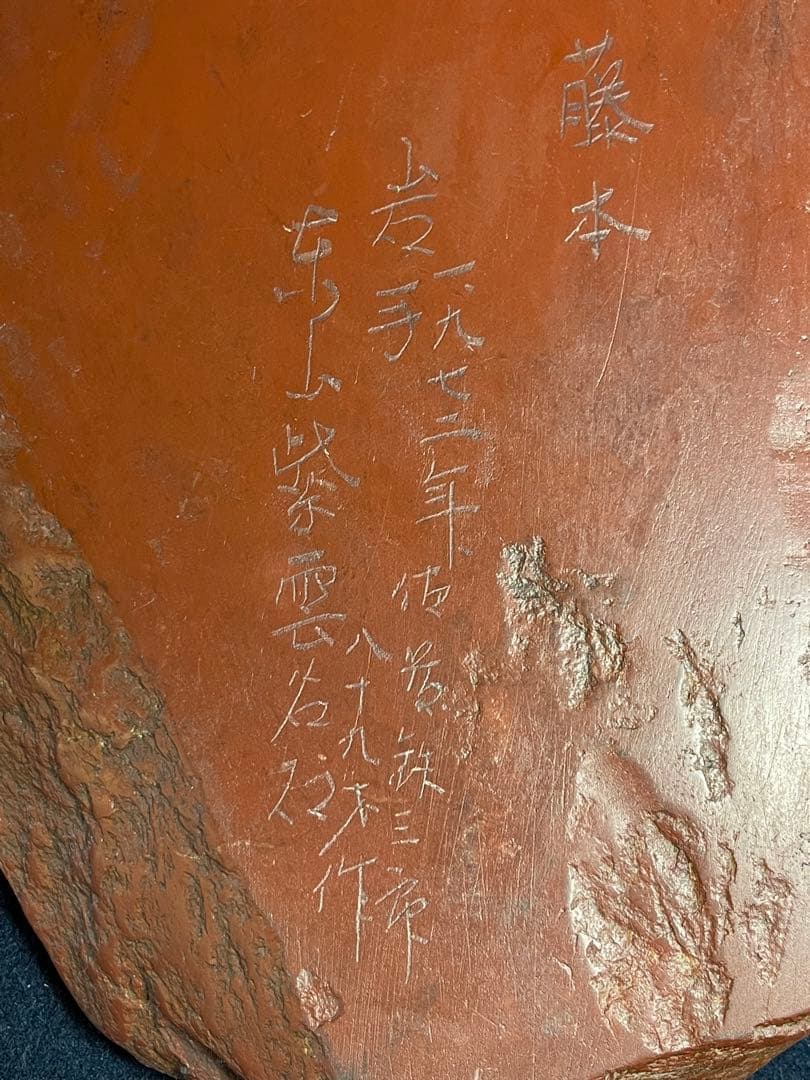 藤本
一九七二年 佐藤鉄三郎
岩手
八十九才作
東山紫雲石硯